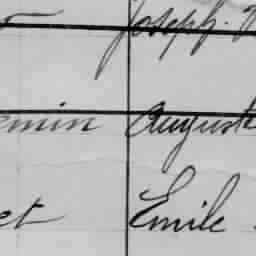 Joseph.
emin Auguste
et Emile